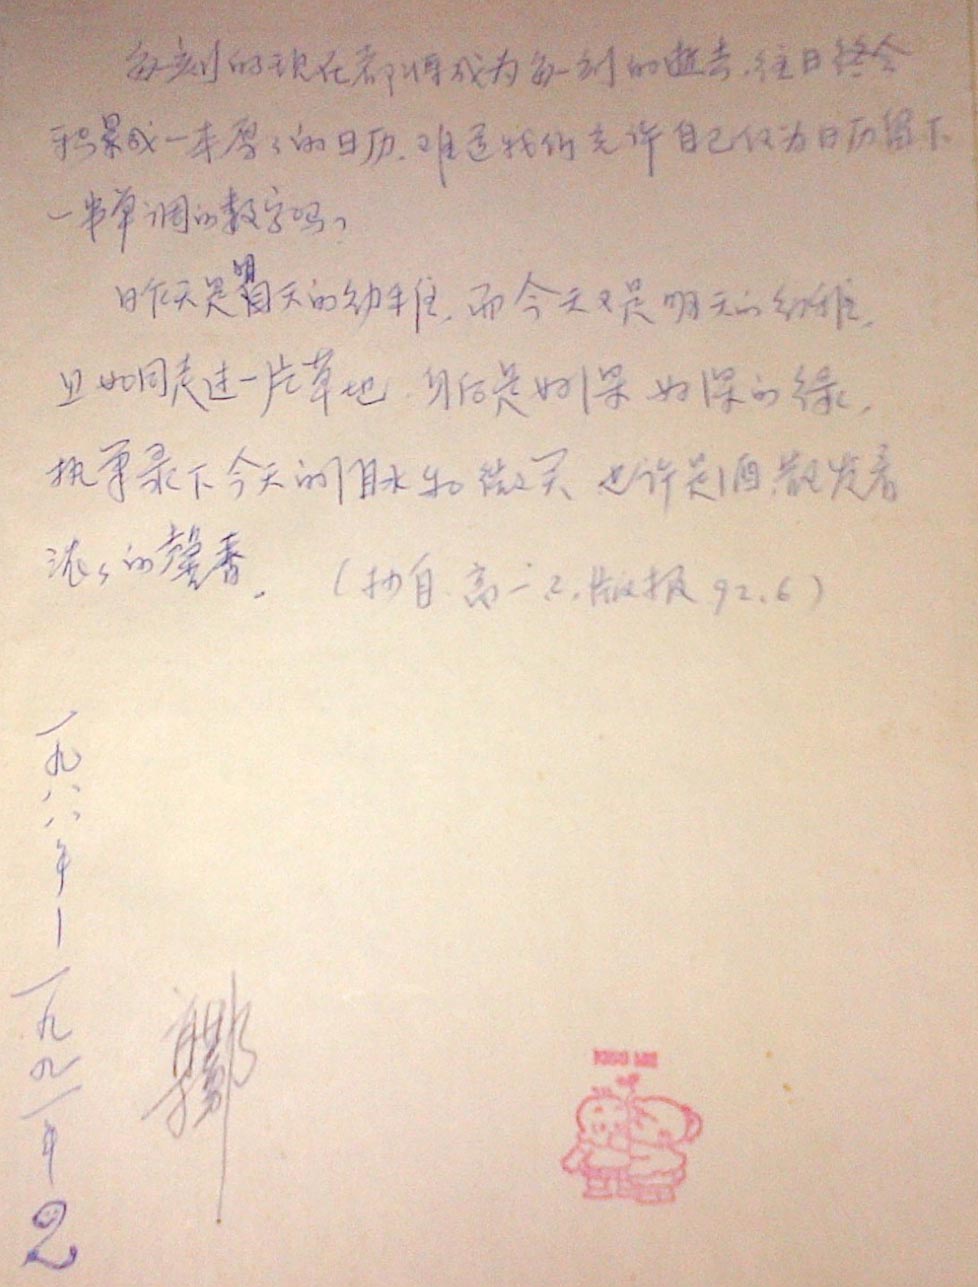 每刻的现在都将成为每一刻的逝去,往日终会
积累成一本厚々的日历,难道我们允许自己仅为日历留下
一串单调的数字吗?
昨天是明天的幼稚,而今天又是明天的幼稚,
且如同走进一片草地,身后是好深好深的绿,
执笔录下今天的泪水和微笑 也许是酒,散发着
浓々的馨香。 (抄自高一2.版报92.6)
一九八六年—一九九一年
2